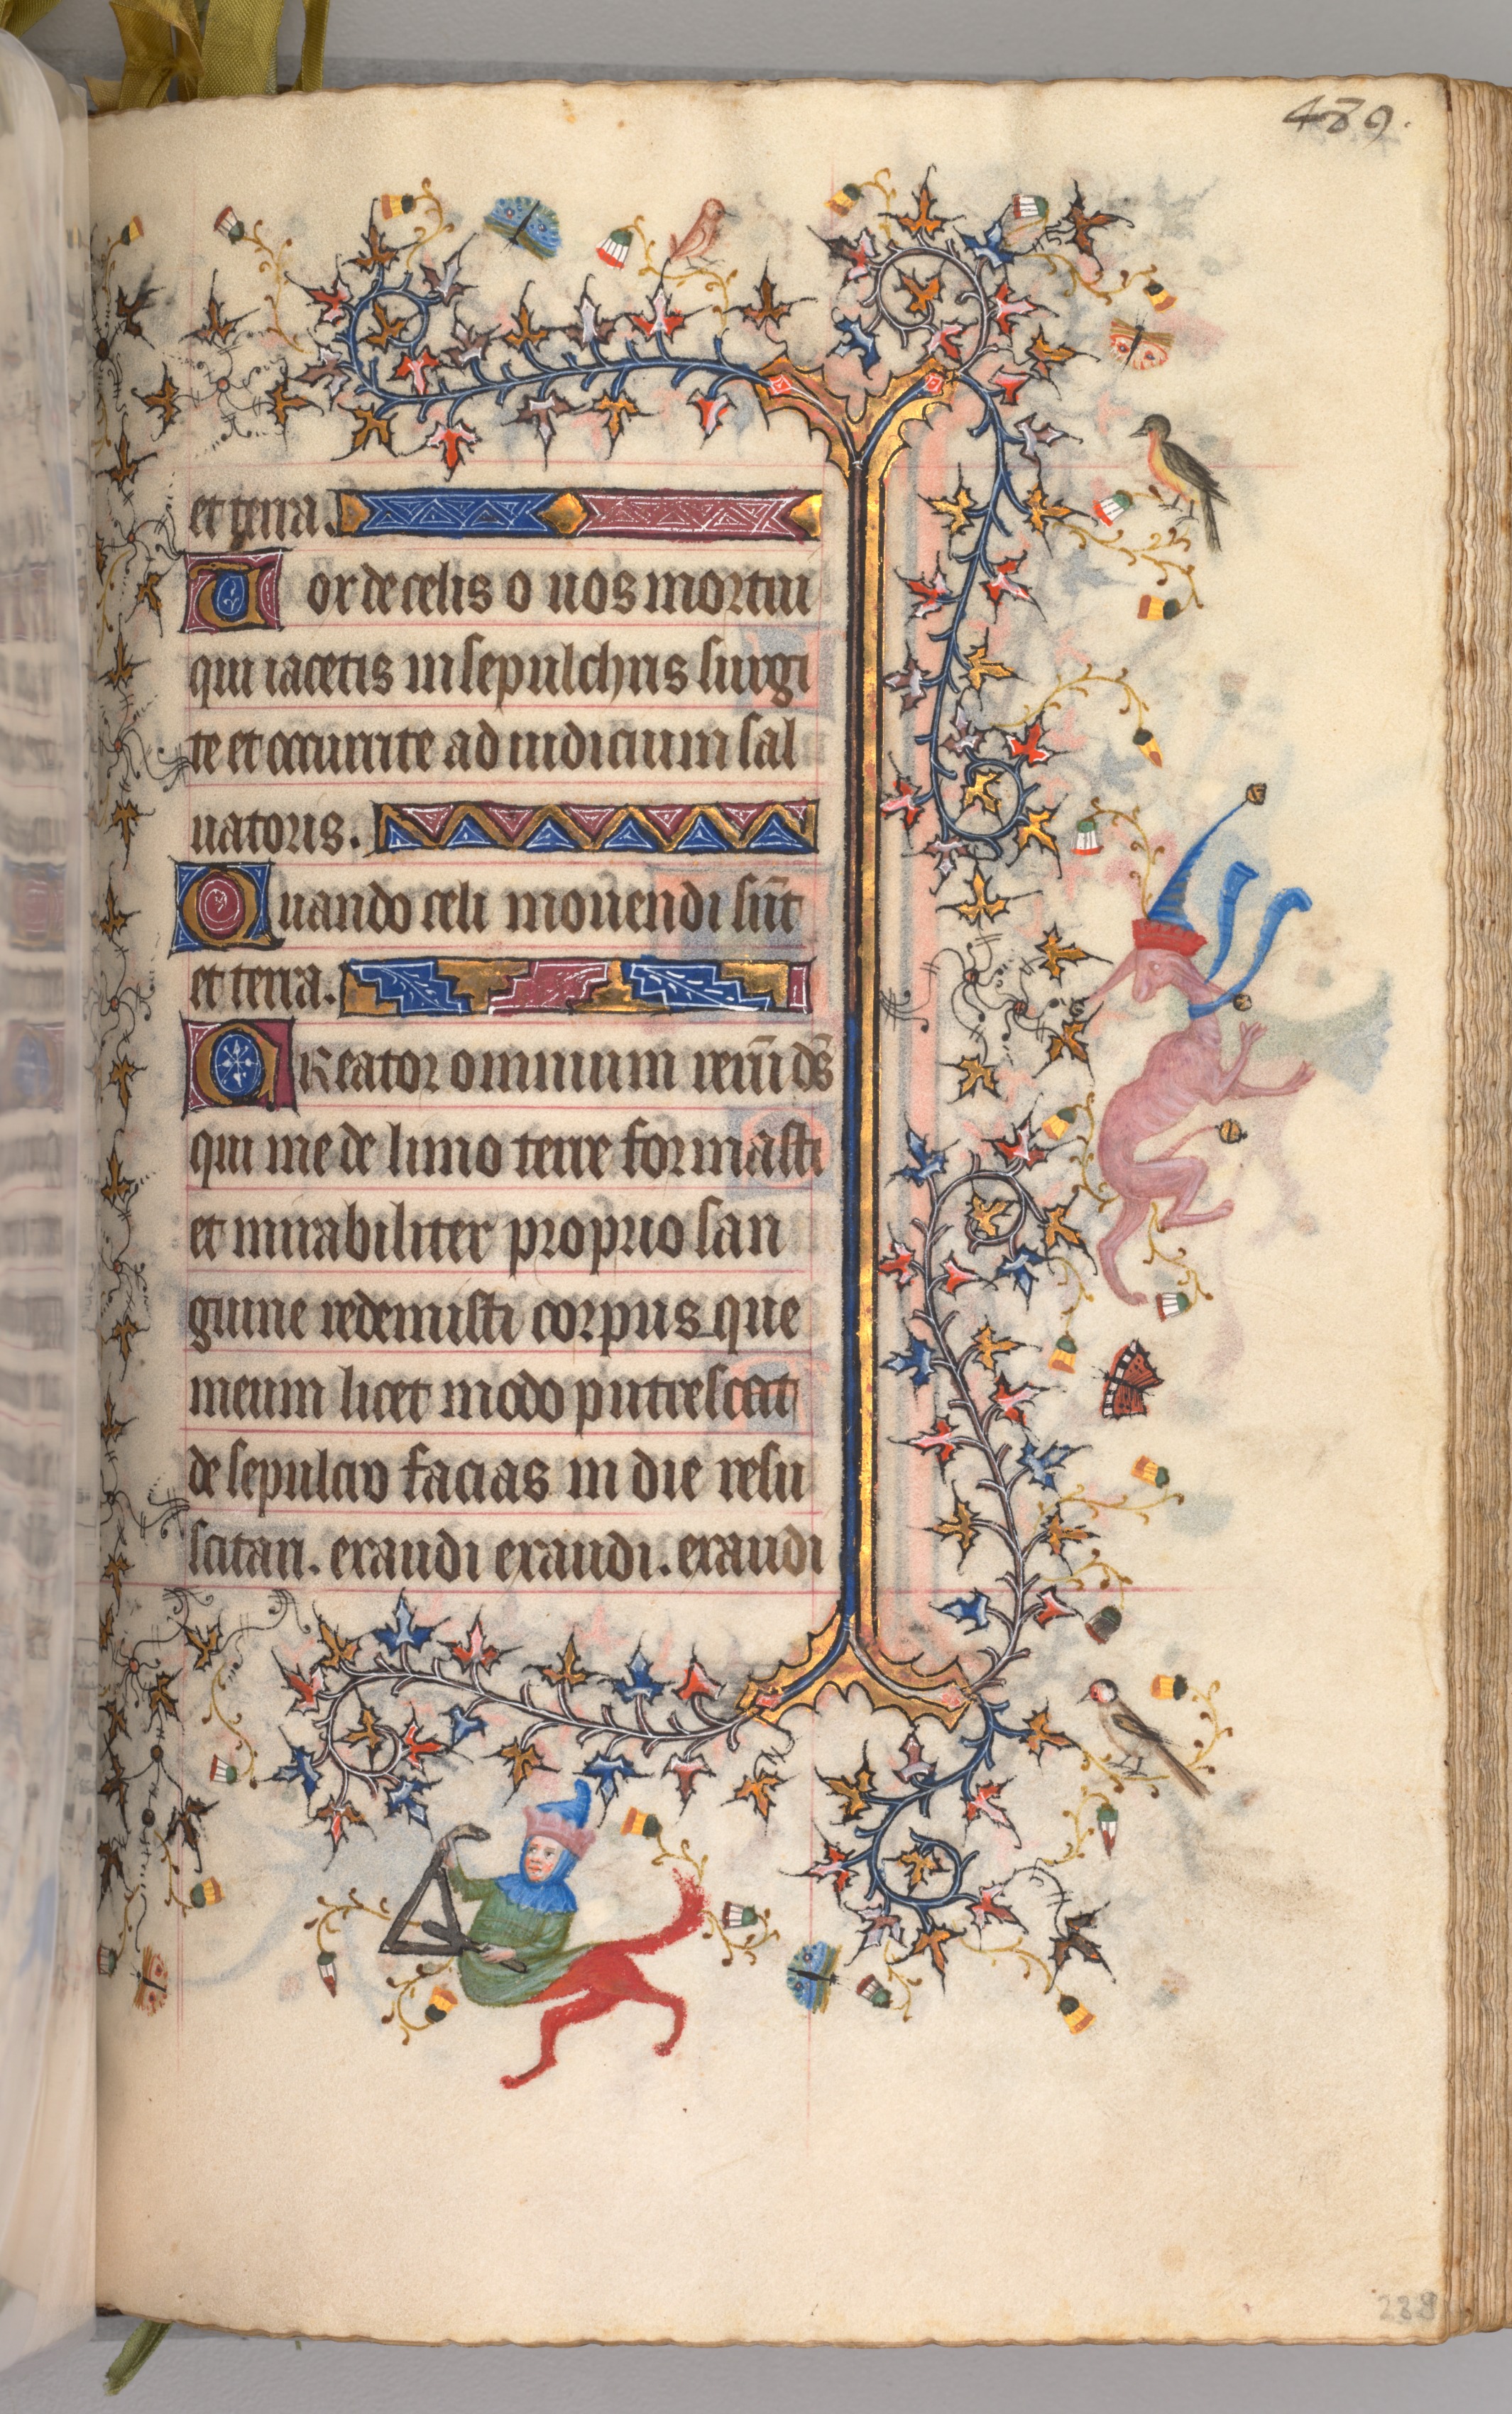 489.
et terra.
Uor de celis o uos mortui
qui iacetis in sepulchris surgi
te et occurrite ad iudicium sal
uatoris.
Quando celi mouendi sūt
et terra.
CReator omnium rerū dš
qui me de limo terre formasti
et mirabiliter proprio san
guine redemisti corpus que
meum licet modo putrescat
de sepulcro facias in die resu
scitari. exaudi exaudi. exaudi